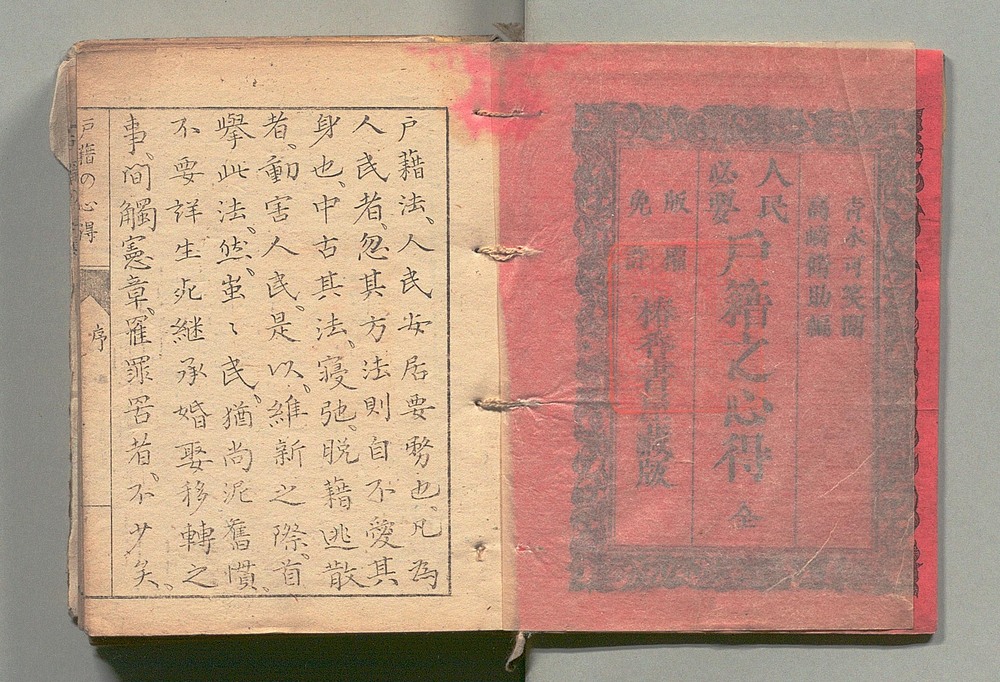 青木可笑閲
高崎脩助編
人民
必要
戸籍之心得 全
版權
免許
椿香書屋蔵版
戸籍法、人民安居要務也、凡為
人民者、忽其方法則自不愛其
身也、中古其法、寝弛、脱籍逃散
者、動害人民、是以、維新之際、首
擧此法、然、蚩〻民、猶尚泥舊慣、
不要詳生死継承婚娶移轉之
事、間觸憲章、罹罪罟者、不少矣、
戸籍の心得
序